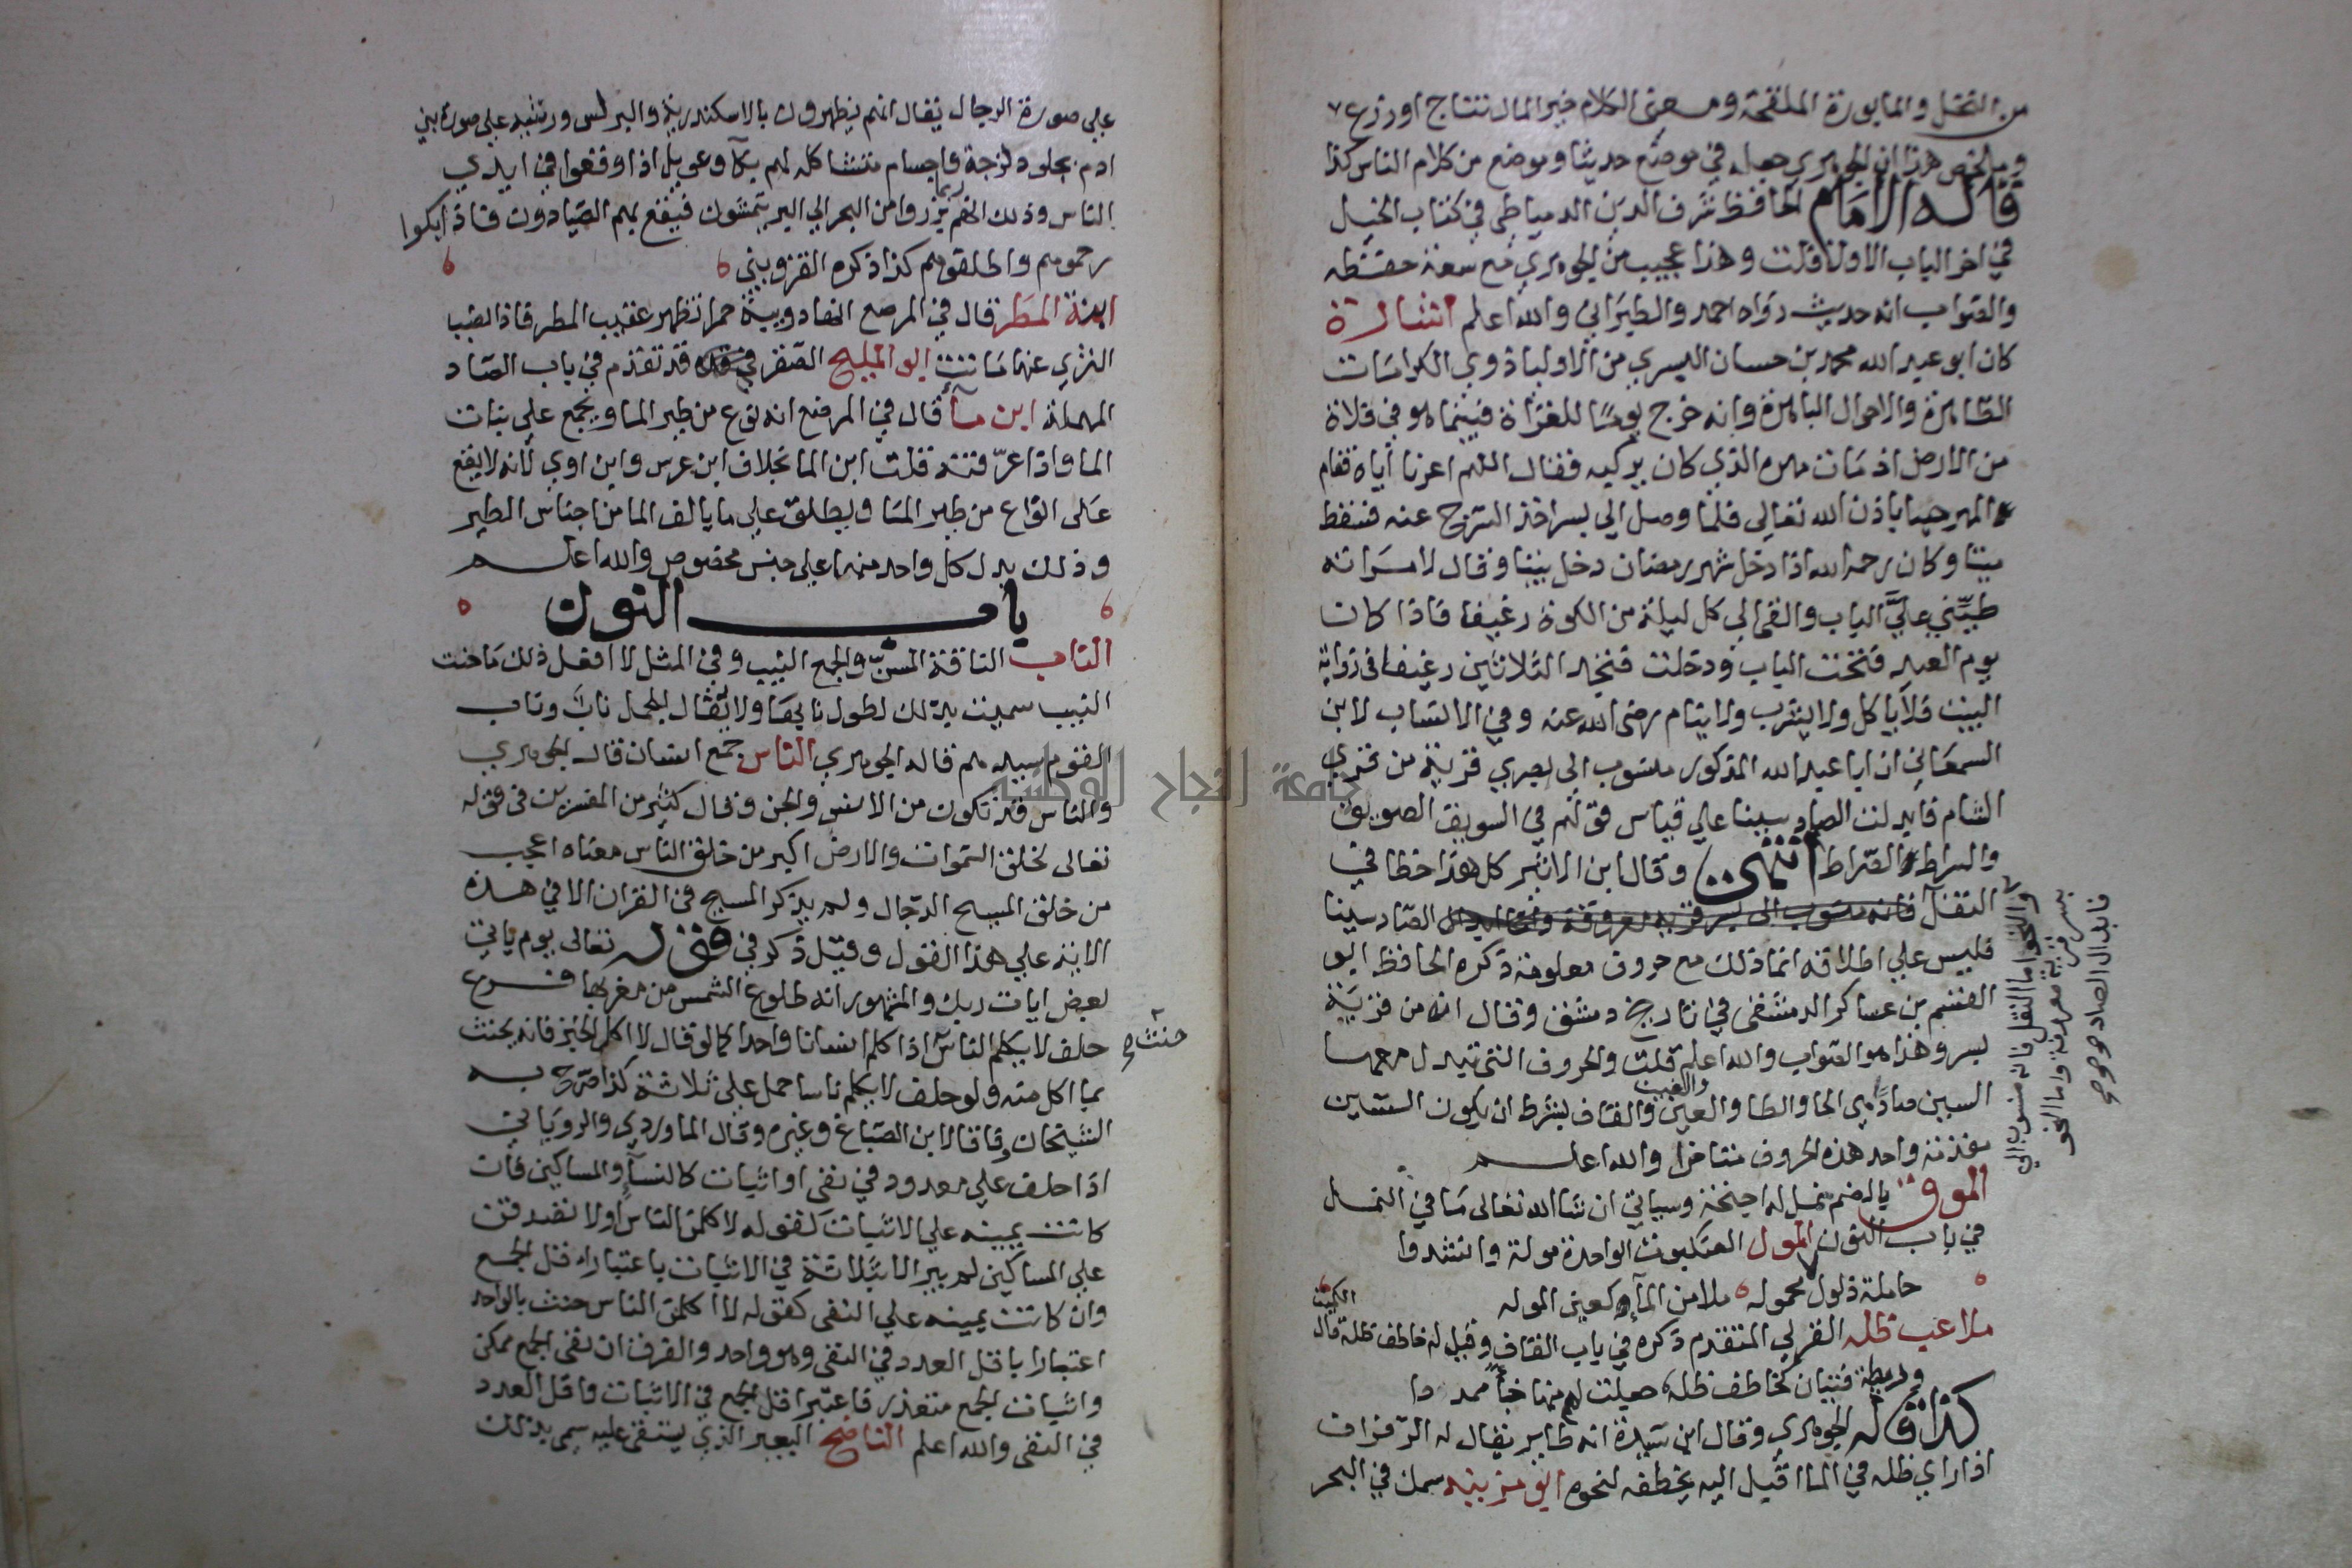 من النخل والمابورة الملقحة ومعنى الكلام خير المال نتاج او زرع
وملخص هذا ان الجوهري جعله في موضع حديثا وموضع من كلام الناس كذا
قاله الامام الحافظ شرف الدين الدمياطي في كتاب الخيل
في اخر الباب الاول قلت وهذا عجيب من الجوهري مع سعة حفظه
والصواب انه حديث رواه احمد والطبراني والله اعلم اشارة
كان ابو عبد الله محمد بن حسان البسري من الاولياء ذوي الكرامات
الظاهرة والاحوال الباهرة وانه خرج يوما للغزاة فبينما هو في فلاة
من الارض اذ مات مهره الذي كان يركبه فقال اللهم اعرنا اياه فقام
المهر حيا باذن الله تعالى فلما وصل الى بسر اخذ السرج عنه فسقط
ميتا وكان رحمه الله اذا دخل شهر رمضان دخل بيتا وقال لامراته
طيني علي الباب والقي الي كل ليلة من الكوة رغيفا فاذا كان
يوم العيد فتحت الباب ودخلت فتجد الثلاثين رغيفا في زواية
البيت فلا ياكل ولا يشرب ولا ينام رضى الله عنه وفي الانساب لابن
السمعاني ان ابا عبد الله المذكور منسوب الي بصري قرية من قري
الشام فابدلت الصاد سينا علي قياس قولهم في السويق الصويق
والسراط والصراط انتهى وقال ابن الاثير كل هذا خطا في
النقل فانه منسوب الى بسر قرية معروفة واما ابدال الصاد سينا
فليس علي اطلاقه انما ذلك مع حروف معلومة ذكره الحافظ ابو
القسم بن عساكر الدمشقى في تاريخ دمشق وقال انه من قرية
بسر وهذا هو الصواب والله اعلم قلت والحروف التي تبدل معها
السين صادا هي الحا والطا والعين والغين والقاف بشرط ان يكون السين
متقدمة واحد هذه الحروف متاخرا والله اعلم
والنحو اما النقل فانه منسوب الي
بسر قرية معروفة واما النحو
فابدال الصاد صح صح
الموق بالضم نمل له اجنحة وسياتي ان شا الله تعالى ما في النمل
في باب النون المول العنكبوت الواحدة مولة وانشدوا
حاملة دلول لا محموله ملا من المآء كعين الموله
ملاعب ظله القرلي المتقدم ذكره في باب القاف وقيل له خاطف ظله قال الكميت
وريطة فتيان كخاطف ظله جعلت لهم منها خباء ممددا
كذا قاله الجوهري وقال ابن سيدة انه طاير يقال له الرفراف
اذا راي ظله في الما اقبل اليه يخطفه لنحوه ابو مزينه سمك في البحر
علي صورة الرجال يقال انهم يظهرون بالاسكندرية والبرلس ورشيد علي صورة بني
ادم بجلود لزجة واجسام متشاكله لهم بكآ وعويل اذا وقعوا في ايدي
الناس وذلك انهم ربما برزوا من البحر الي البر يتمشون فيقع بهم الصيادون فاذا بكوا
رحموهم واطلقوهم كذا ذكره القزويني
ابنة المطر قال في المرصع انها دويبة حمرا تظهر عقيب المطر فاذا نضب
الثري عنها ماتت ابو المليح الصقر قد تقدم في باب الصاد
المهملة ابن مآء قال في المرصع انه نوع من طير الما ويجمع علي بنات
الما واذا عرفته قلت ابن الما بخلاف ابن عرس وابن اوي لانه لا يقع
على انواع من طير الما ويطلق علي ما يالف الما من اجناس الطير
وذلك يدل كل واحد منهما علي جنس مخصوص والله اعلم
باب النون
الناب الناقة المسنة والجمع النيب وفي المثل لا افعل ذلك ما حنت
النيب سميت بذلك لطول نابها ولا يقال للجمل ناب وناب
القوم سيدهم قاله الجوهري الناس جمع انسان قال الجوهري
والناس قد تكون من الانس والجن وقال كثير من المفسرين في قوله
تعالى لخلق السموات والارض اكبر من خلق الناس معناه اعجب
من خلق المسيح الدجال ولم يذكر المسيح في القران الا في هذه
الاية علي هذا القول وقيل ذكر في قوله تعالى يوم ياتي
بعض ايات ربك والمشهور انه طلوع الشمس من مغربها فرع
حلف لا يكلم الناس حنث اذا كلم انسانا واحدا كما لو قال لا اكل الخبز فانه يحنث
بما اكل منه ولو حلف لا يكلم ناسا حمل علي ثلاثة كذا صرح به
الشيخان وقاقا لابن الصباغ وغيره وقال الماوردي والروياني
اذا حلف علي معدود في نفى او اثبات كالنسآء والمساكين فان
كانت يمينه علي الاثبات كقوله لاكلمن الناس او لاتصدقن
علي المساكين لم يبر الا بثلاثة في الاثبات باعتبارا اقل الجمع
وان كانت يمينه علي النفى كقوله لا اكلمن الناس حنث بالواحد
اعتبارا باقل العدد في النفى وهو واحد والفرق ان نفى الجمع ممكن
واثبات الجمع متعذر فاعتبر اقل الجمع في الاثبات واقل العدد
في النفى والله اعلم الناضح البعير الذي يستقى عليه سمى بذلك
جامعة النجاح الوطنية